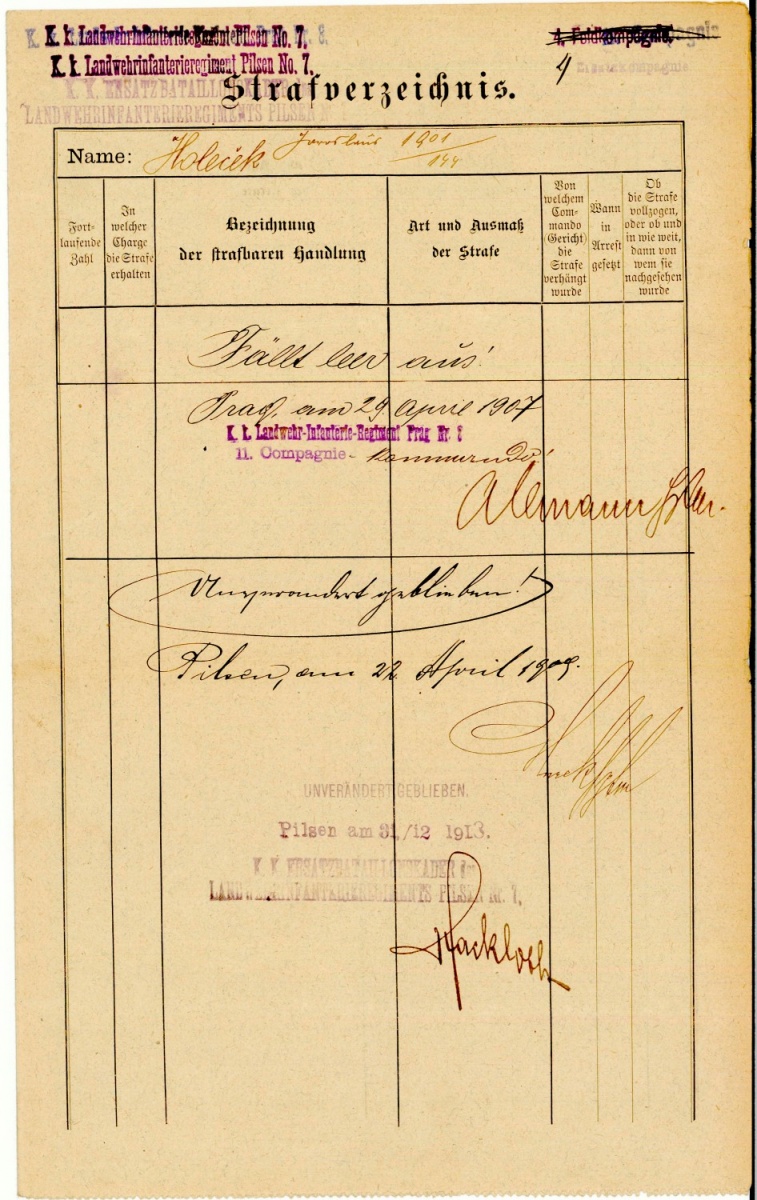 K. k. Landwehrinfanterieregiment Pilsen No. 7.
4. Feldkompagnie.
K. k. Landwehrinfanterieregiment Pilsen No. 7.
4
K. K. ERSATZBATAILLONSKADER
LANDWEHRINFANTERIEREGIMENTS PILSEN N
Strafverzeichnis.
Name: Holeček Jaroslaus 1901/144
Fort-
laufende
Zahl
In
welcher
Charge
die Strafe
erhalten
Bezeichnung
der strafbaren Handlung
Art und Ausmaß
der Strafe
Von
welchem
Com-
mando
(Gericht)
die
Strafe
verhängt
wurde
Wann
in
Arrest
gesetzt
Ob
die Strafe
vollzogen,
oder ob und
in wie weit,
dann von
wem sie
nachgesehen
wurde
Fällt leer aus!
Prag, am 29 April 1907
K. k. Landwehr-Infanterie-Regiment Prag Nr. 8
11. Compagnie-Kommando!
Alemann
Unverändert geblieben!
Pilsen, am 22. April 1909.
UNVERÄNDERT GEBLIEBEN.
Pilsen am 31/12 1913.
K. K. ERSATZBATAILLONSKADER des
LANDWEHRINFANTERIEREGIMENTS PILSEN Nr. 7.